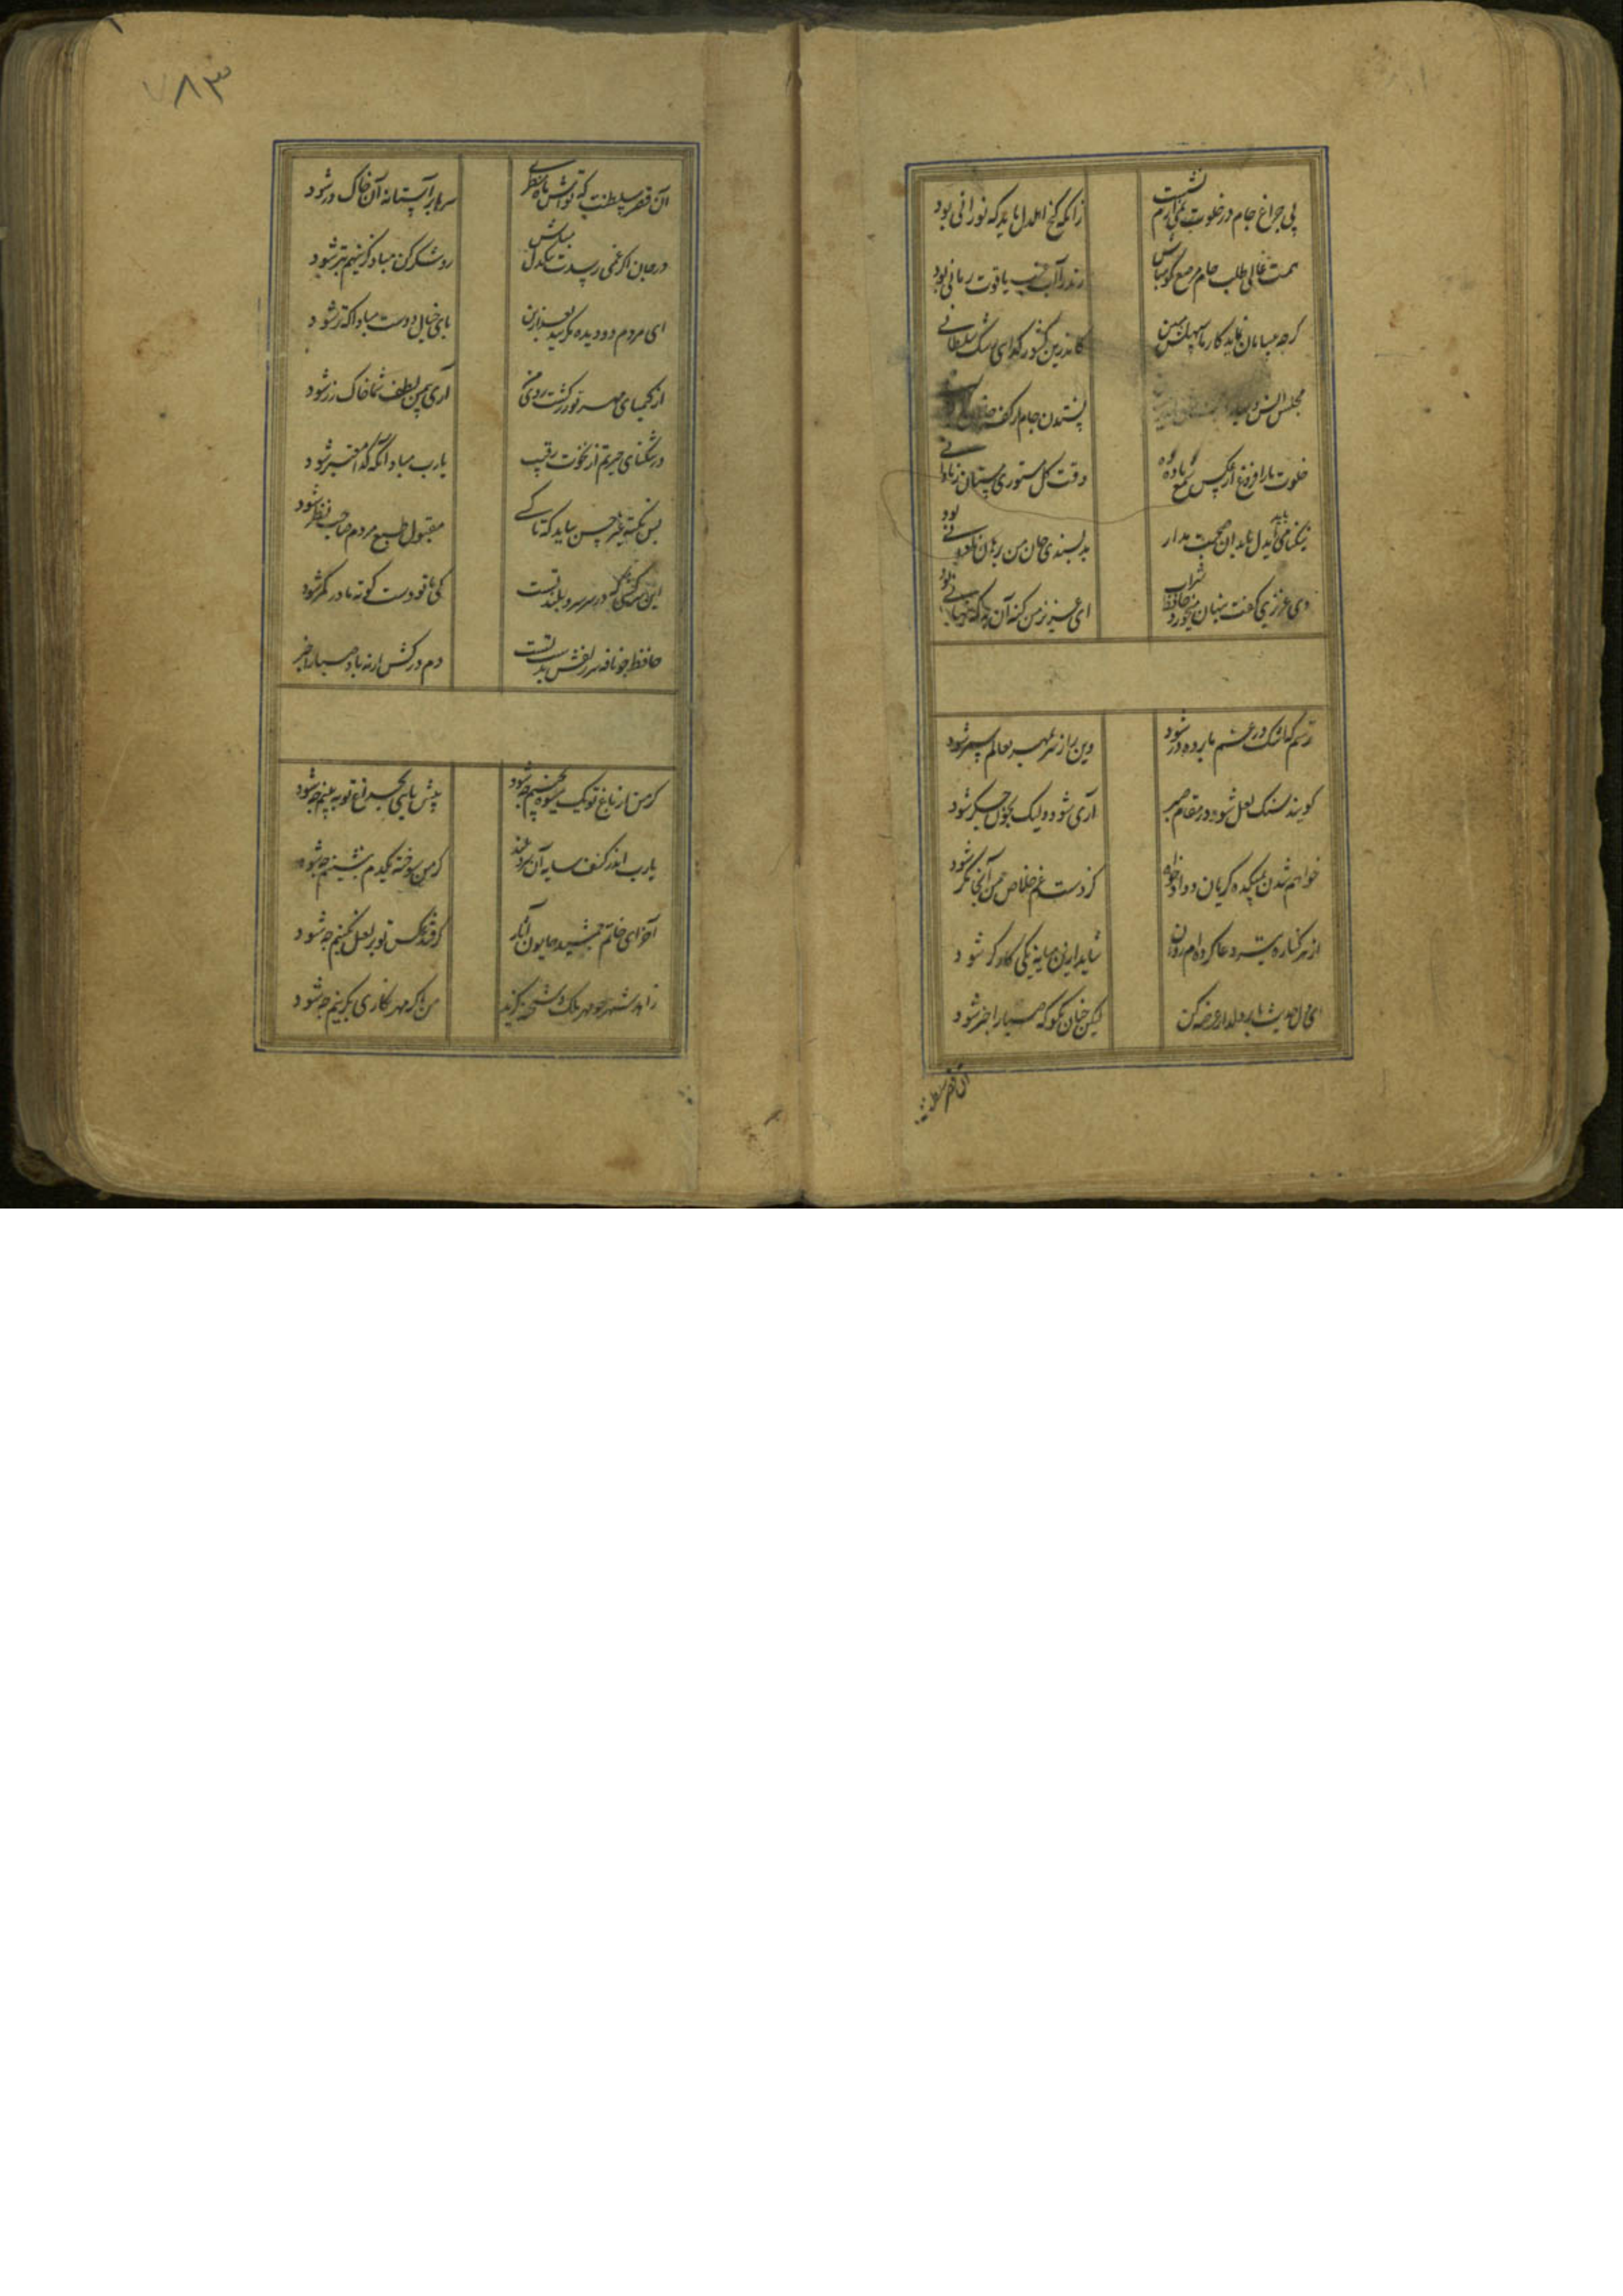 بی چراغ جام در خلوت نمی‌آرم نشست زانکه کنج اهل دل باید که نورانی بود
همت عالی طلب جام مرصع کو مباش رند را آب عنب یاقوت رمانی بود
کرچه بی سامان نماید کار ما سهلش مبین کاندرین کشور کدایی رشک سلطانی بود
مجلس انس و بهار نستدن جام از کف
خلوت ما را فروغ از عکس شمع و باده باد وقت کل مستوری مستان ز نادانی بود
نیکنامی باید ای دل با بدان صحبت مدار بد پسندی جان من برهان نادانی بود
دی عزیزی کفت پنهان میخورد حافظ شراب ای عزیز من کنه آن به که پنهانی بود
ترسم که اشک در غم ما پرده در شود وین راز سر بمهر بعالم سمر شود
کویند سنک لعل شود در مقام صبر آری شود ولیک بخون جکر شود
خواهم شدن بمیکده کریان و دادخواه کز دست غم خلاص من آنجا مکر شود
از هر کناره تیر دعا کرده‌ام روان شاید ازین میانه یکی کارکر شود
ای دل حدیث ما بر دلدار عرضه کن لیکن چنان مکو که صبا را خبر شود
آن قصر سلطنت
۷۸۳
آن قصر سلطنت که تواش ماه منظری سرها بر آستانه آن خاک در شود
در جان اکر غمی رسدت تنکدل مباش رو شکر کن مباد کزینهم بتر شود
ای مردم دو دیده مکریید بعد ازین پای خیال دوست مبادا که تر شود
از کیمیای مهر تو زر کشت روی من آری بیمن لطف شما خاک زر شود
در تنکنای حیرتم از نخوت رقیب یارب مباد آنکه کدا معتبر شود
بس نکته غیر حسن بباید که تا کسی مقبول طبع مردم صاحب نظر شود
این سرکشی که در سر سرو بلند تست کی با تو دست کوته ما در کمر شود
حافظ چو نافه سر زلفش بدست تست دم در کش ار نه باد صبا را خبر
کر من از باغ تو یک میوه بچینم چه شود پیش پایی بچراغ تو ببینم چه شود
یارب اندر کنف سایه آن سرو بلند کر من سوخته یکدم بنشینم چه شود
آخر ای خاتم جمشید همایون آثار کر فتد عکس تو بر لعل نکینم چه شود
زاهد شهر چو مهر ملک و شحنه کزید من اکر مهر نکاری بکزینم چه شود